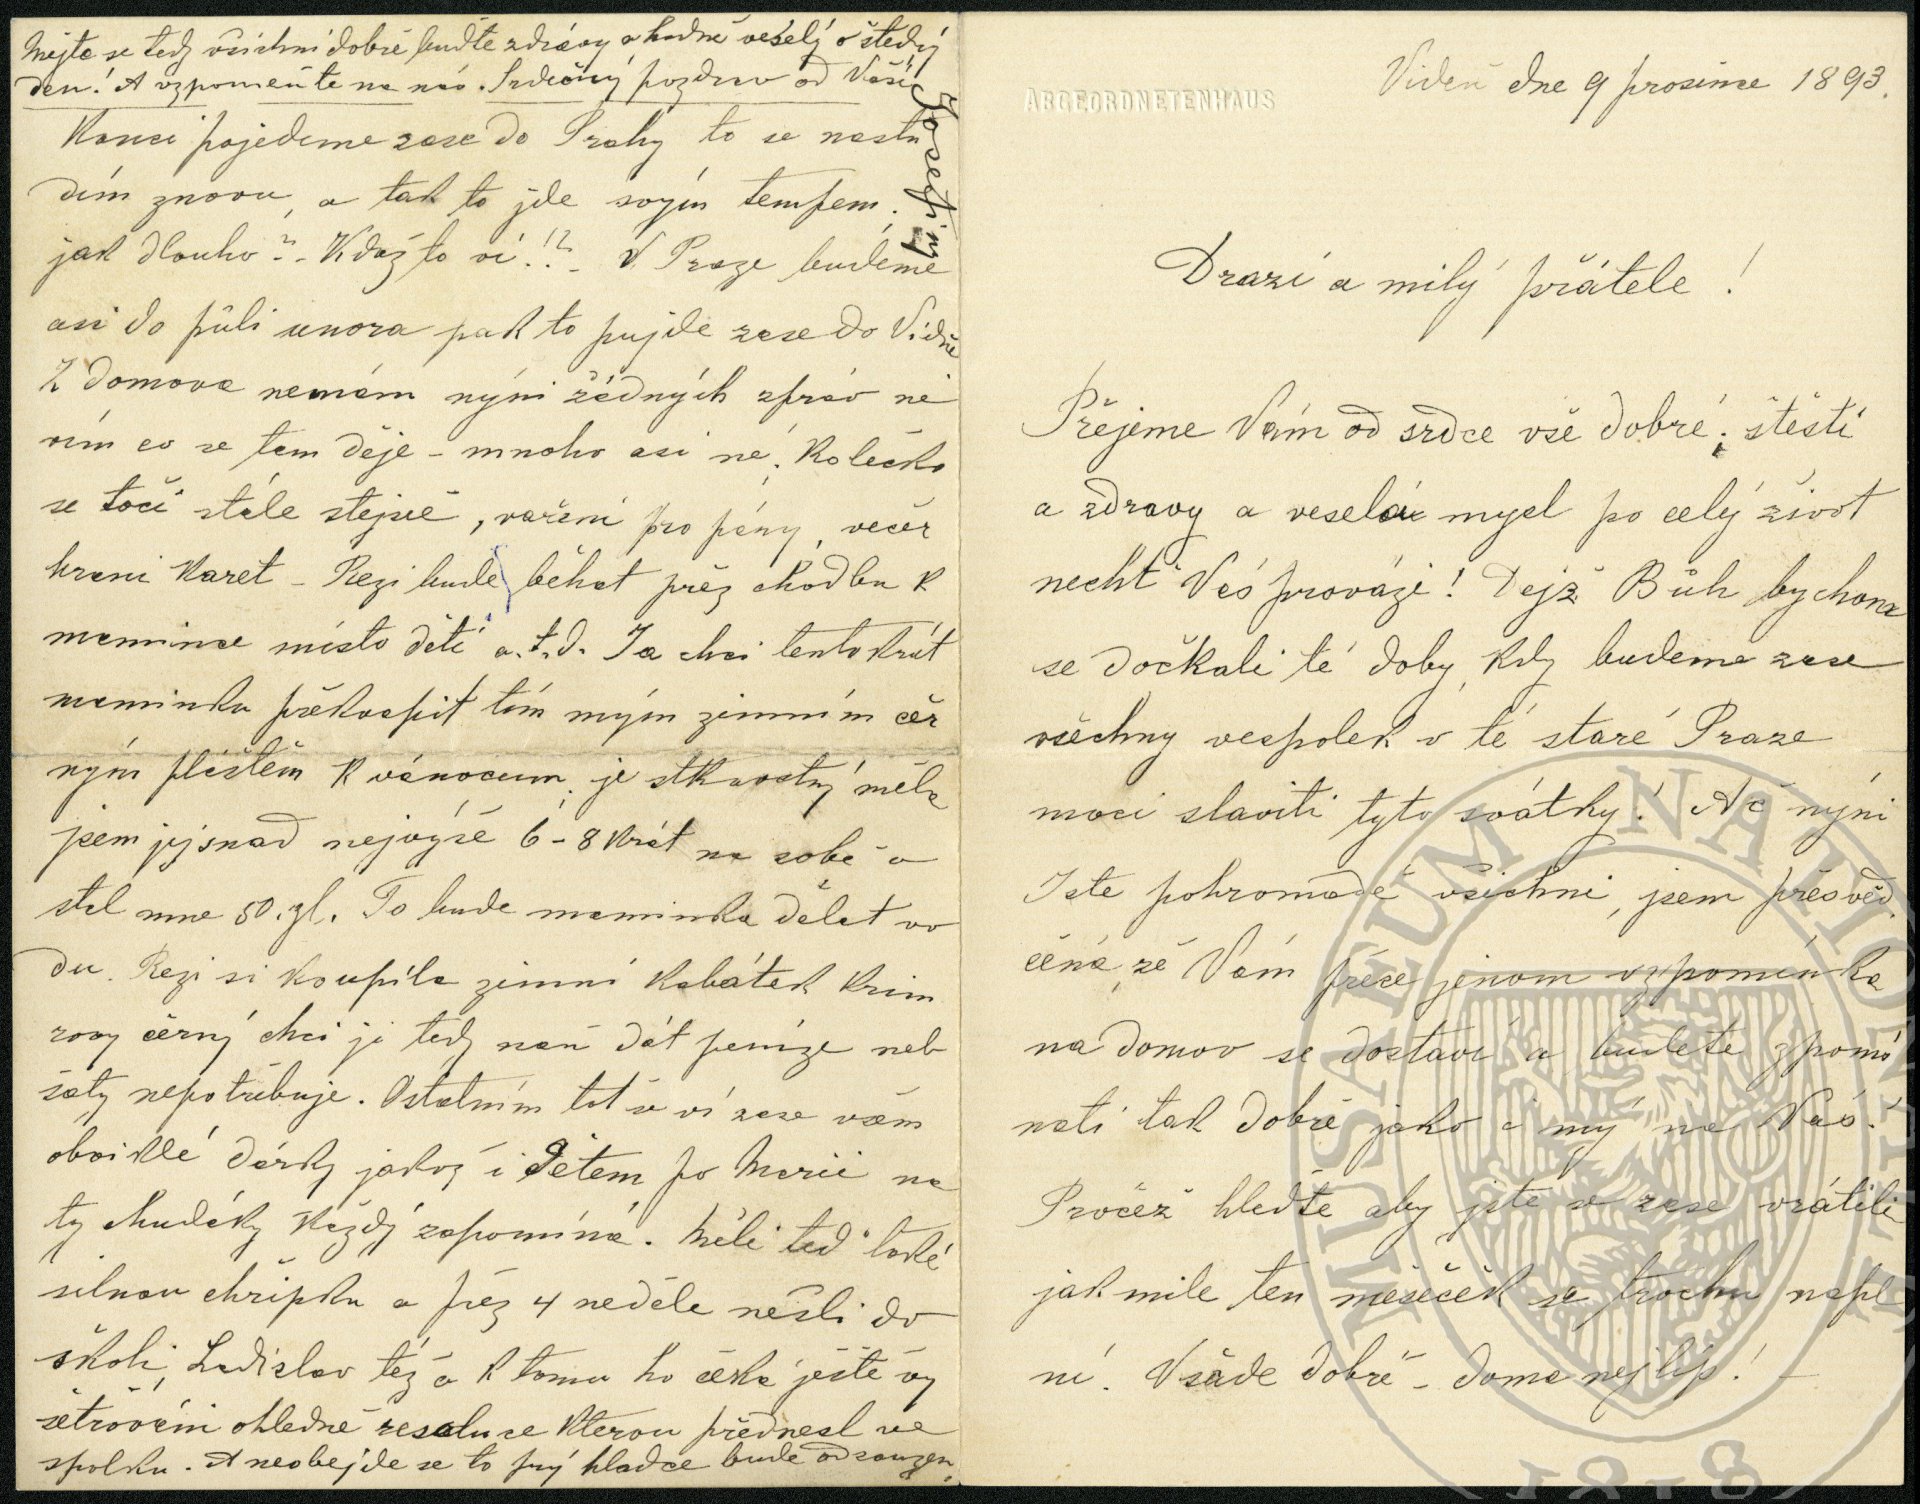 Mějte se tedy všichni dobře buďte zdrávy a hodně veselý o štědrý
den! A vzpomeňte na nás. Srdečný pozdrav od Vaší
Josefiny
Konci pojedeme zase do Prahy to se nastu
dím znovu, a tak to jde svým tempem.
jak dlouho? - Kdož to ví!? - V Praze budeme
asi do půli unora pak to pujde zase do Vídně
Z domova nemám nýni žádných zpráv ne
vím co se tam děje - mnoho asi né. Kolečko
se točí stále stejně, vaření pro pány, večer
hraní karet - Rezi bude běhat přez chodbu k
mamince místo dětí a.t.d. Ja chci tentokrát
maminku překvapit tím mým zimním čer
ným pláštěm k vánocum, je skvostný měla
jsem jej snad nejvýše 6-8 krát na sobě a
stál mne 50. zl. To bude maminka dělat vo
du. Rezi si koupila zimní kabátek krim
rovy černý chci ji tedy naň dát peníze neb
šaty nepotřebuje. Ostatním tot se ví zase vám
obviklé dárky jakož i dětem po Marii na
ty chudáky každý zapomíná. Měli teď také
silnou chřipku a přez 4 neděle nešli do
školi, Ladislav též a k tomu ho čeká ještě vy
šetřování ohledně resoluce kterou přednesl ve
spolku. A neobejde se to prý hladce bude odsouzen.
ABGEORDNETENHAUS
Videň dne 9 prosince 1893.
Drazí a milý přátele!
Přejeme Vám od srdce vše dobré; štěstí
a zdravy a veselá mysl po celý život
nechť Vás provází! Dejž Bůh bychom
se dočkali té doby kdy budeme zase
všechny vespolek v té staré Praze
moci slaviti tyto svátky! Ač nýni
Jste pohromadě všichni, jsem přesvěd
čená, že Vám přece jenom vzpomínka
na domov se dostaví a budete zpomí
nati tak dobře jako i mý na Vás.
Pročež hleďte aby jste se zase vrátili
jakmile ten měsíček se trochu napl
ní. Všade dobře - doma nejlíp! -
MUSAEUM NATIONALE
1818